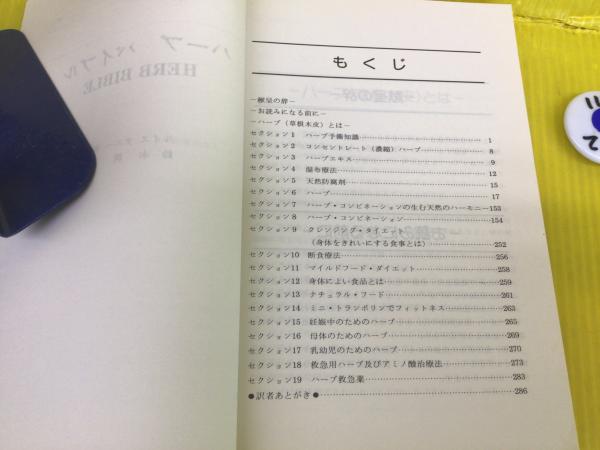 もくじ
－献呈の辞－
－お読みになる前に－
－ハーブ（草根木皮）とは－
セクション1 ハーブ予備知識…………1
セクション2 コンセントレート（濃縮）ハーブ…………8
セクション3 ハーブエキス…………9
セクション4 湿布療法…………12
セクション5 天然防腐剤…………15
セクション6 ハーブ…………17
セクション7 ハーブ・コンビネーションの生む天然のハーモニー…153
セクション8 ハーブ・コンビネーション…………154
セクション9 クレンジング・ダイエット
（身体をきれいにする食事とは）…………252
セクション10 断食療法…………256
セクション11 マイルドフード・ダイエット…………258
セクション12 身体によい食品とは…………259
セクション13 ナチュラル・フード…………261
セクション14 ミニ・トランポリンでフィットネス…………263
セクション15 妊娠中のためのハーブ…………265
セクション16 母体のためのハーブ…………269
セクション17 乳幼児のためのハーブ…………270
セクション18 救急用ハーブ及びアミノ酸治療法…………273
セクション19 ハーブ救急薬…………283
●訳者あとがき●…………286
ハーブ バイブル
HERB BIBLE